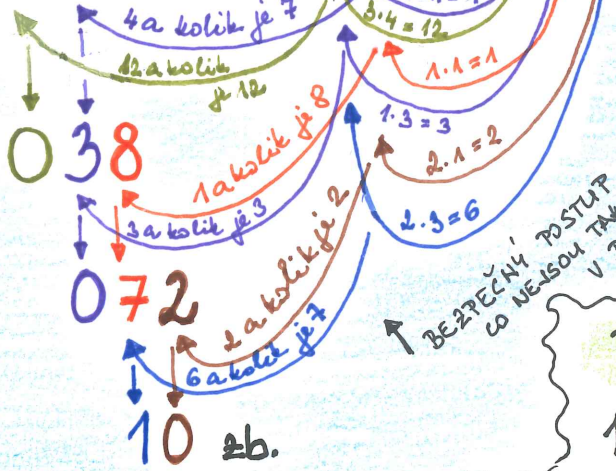 4 a kolik je 7
3·4=12
12 a kolik
je 12
1·1=1
0 3 8
1 a kolik je 8
1·3=3
3 a kolik je 3
2·1=2
0 7 2
2 a kolik je 2
2·3=6
6 a kolik je 7
BEZPEČNÝ POSTUP
CO NEJSOU
V
1 0 zb.